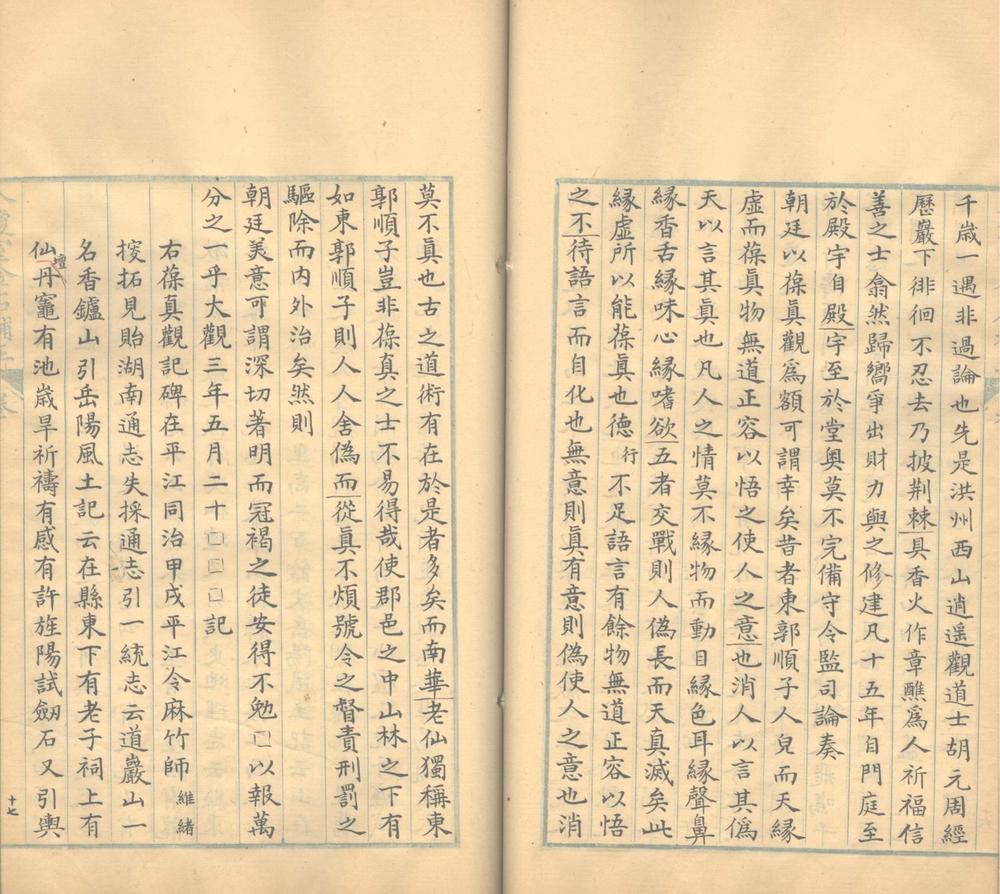 千歳一遇非過論也先是洪州西山逍遥觀道士胡元周經
歷巖下徘徊不忍去乃披荆棘具香火作章醮爲人祈福信
善之士翕然歸嚮爭出財力與之修建凡十五年自門庭至
於殿宇自殿宇至於堂奥莫不完備守令監司論奏
朝廷以葆眞觀爲額可謂幸矣昔者東郭順子人皃而天緣
虛而葆眞物無道正容以悟之使人之意也消人以言其僞
天以言其眞也凡人之情莫不縁物而動目縁色耳縁聲鼻
縁香舌縁味心縁嗜欲五者交戰則人僞長而天真滅矣此
縁虛所以能葆眞也德行不足語言有餘物無道正容以悟
之不待語言而自化也無意則眞有意則僞使人之意也消
莫不眞也古之道術有在於是者多矣而南華老仙獨稱東
郭順子豈非葆真之士不易得哉使郡邑之中山林之下有
如東郭順子則人人舍僞而從眞不煩號令之督責刑罰之
驅除而内外治矣然則
朝廷美意可謂深切著明而冠褐之徒安得不勉□以報萬
分之一乎大觀三年五月二十□□□記
右葆真觀記碑在平江同治甲戌平江令麻竹師維緒
搜拓見貽湖南通志失採通志引一統志云道巖山一
名香鑪山引岳陽風土記云在縣東下有老子祠上有
仙壇丹竈有池歳旱祈禱有感有許旌陽試劒石又引輿
十七